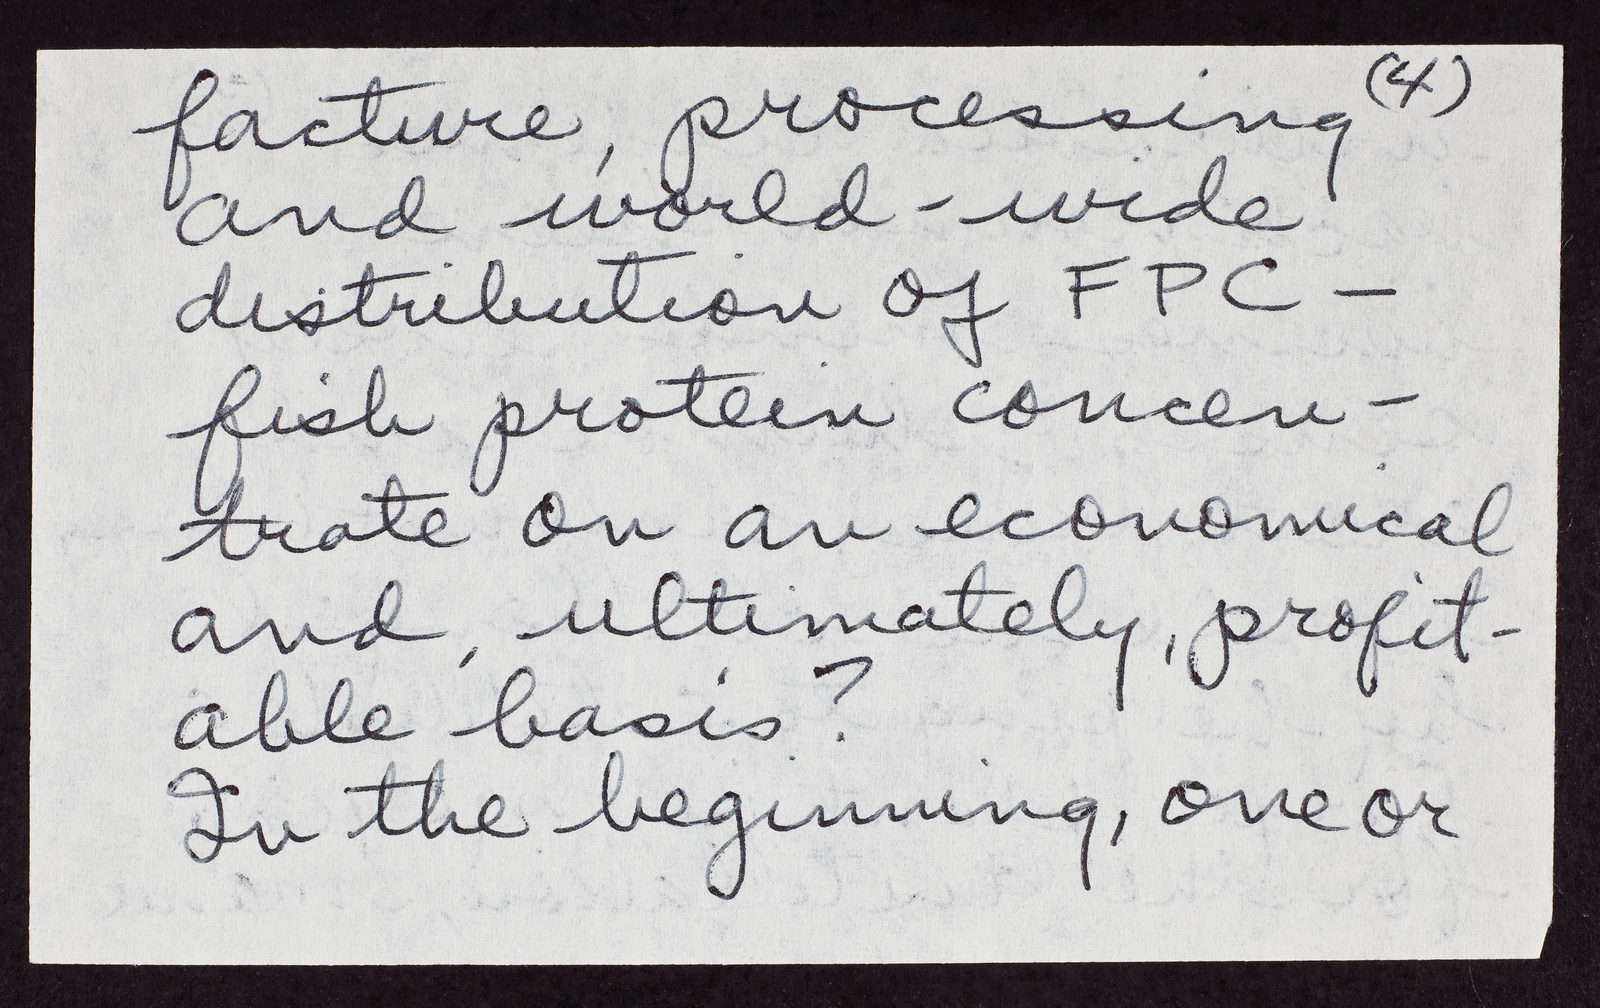 (4)
facture, processing
and world-wide
distribution of FPC -
fish protein concen-
trate on an economical
and, ultimately, profit-
able basis?
In the beginning, one or